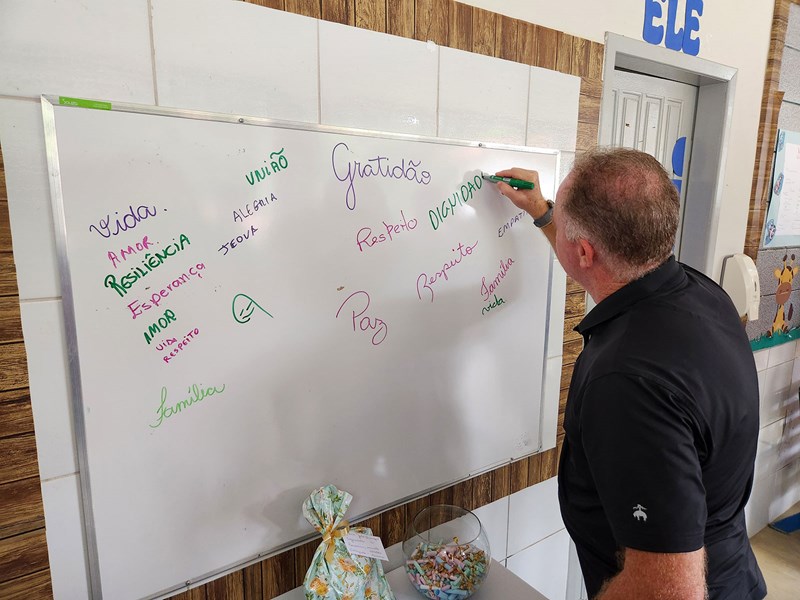 ELE
Vida.
AMOR
RESILIÊNCIA
Esperança
AMOR
Vida
RESPEITO
Família
UNIÃO
ALEGRIA
JEOVA
Gratidão
Respeito
DIGNIDAD
EMPATI
Respeito
Família
Vida
Paz